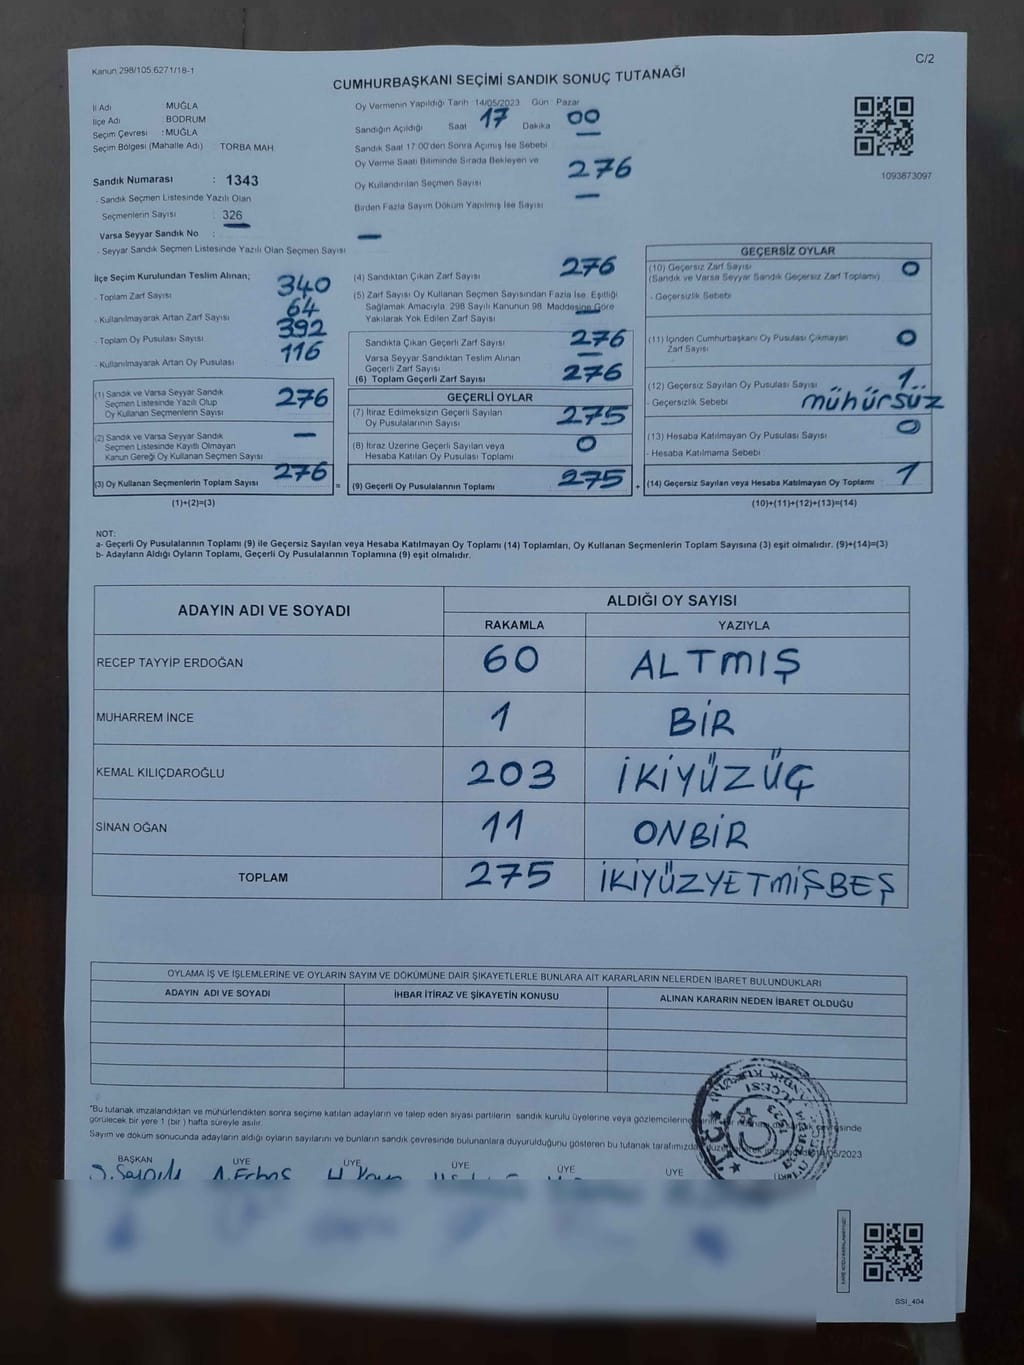 Kanun 298/105:6271/18-1
C/2
CUMHURBAŞKANI SEÇİMİ SANDIK SONUÇ TUTANAĞI
İl Adı MUĞLA
İlçe Adı : BODRUM
Seçim Çevresi : MUĞLA
Seçim Bölgesi (Mahalle Adı) TORBA MAH.
Sandık Numarası : 1343
- Sandık Seçmen Listesinde Yazılı Olan
Seçmenlerin Sayısı : 326
Varsa Seyyar Sandık No : —
- Seyyar Sandık Seçmen Listesinde Yazılı Olan Seçmen Sayısı
Oy Vermenin Yapıldığı Tarih :14/05/2023 Gün : Pazar
Sandığın Açıldığı Saat 17 Dakika 00
Sandık Saat 17:00'den Sonra Açılmış İse Sebebi —
Oy Verme Saati Bitiminde Sırada Bekleyen ve
Oy Kullandırılan Seçmen Sayısı 276
Birden Fazla Sayım Döküm Yapılmış İse Sayısı —
1093873097
İlçe Seçim Kurulundan Teslim Alınan;
- Toplam Zarf Sayısı 340
- Kullanılmayarak Artan Zarf Sayısı 64
- Toplam Oy Pusulası Sayısı 392
- Kullanılmayarak Artan Oy Pusulası 116
(1) Sandık ve Varsa Seyyar Sandık
Seçmen Listesinde Yazılı Olup
Oy Kullanan Seçmenlerin Sayısı 276
(2) Sandık ve Varsa Seyyar Sandık
Seçmen Listesinde Kayıtlı Olmayan
Kanun Gereği Oy Kullanan Seçmen Sayısı —
(3) Oy Kullanan Seçmenlerin Toplam Sayısı 276
(1)+(2)=(3)
=
(4) Sandıktan Çıkan Zarf Sayısı 276
(5) Zarf Sayısı Oy Kullanan Seçmen Sayısından Fazla İse, Eşitliği
Sağlamak Amacıyla 298 Sayılı Kanunun 98. Maddesine Göre
Yakılarak Yok Edilen Zarf Sayısı —
Sandıkta Çıkan Geçerli Zarf Sayısı 276
Varsa Seyyar Sandıktan Teslim Alınan
Geçerli Zarf Sayısı —
(6) Toplam Geçerli Zarf Sayısı 276
GEÇERLİ OYLAR
(7) İtiraz Edilmeksizin Geçerli Sayılan
Oy Pusulalarının Sayısı 275
(8) İtiraz Üzerine Geçerli Sayılan veya
Hesaba Katılan Oy Pusulası Toplamı 0
(9) Geçerli Oy Pusulalarının Toplamı 275
+
GEÇERSİZ OYLAR
(10) Geçersiz Zarf Sayısı 0
(Sandık ve Varsa Seyyar Sandık Geçersiz Zarf Toplamı)
- Geçersizlik Sebebi
(11) İçinden Cumhurbaşkanı Oy Pusulası Çıkmayan
Zarf Sayısı 0
(12) Geçersiz Sayılan Oy Pusulası Sayısı 1
- Geçersizlik Sebebi mühürsüz
(13) Hesaba Katılmayan Oy Pusulası Sayısı 0
- Hesaba Katılmama Sebebi
(14) Geçersiz Sayılan veya Hesaba Katılmayan Oy Toplamı 1
(10)+(11)+(12)+(13)=(14)
NOT:
a- Geçerli Oy Pusulalarının Toplamı (9) ile Geçersiz Sayılan veya Hesaba Katılmayan Oy Toplamı (14) Toplamları, Oy Kullanan Seçmenlerin Toplam Sayısına (3) eşit olmalıdır. (9)+(14)=(3)
b- Adayların Aldığı Oyların Toplamı, Geçerli Oy Pusulalarının Toplamına (9) eşit olmalıdır.
ADAYIN ADI VE SOYADI ALDIĞI OY SAYISI
RAKAMLA YAZIYLA
RECEP TAYYİP ERDOĞAN 60 ALTMIŞ
MUHARREM İNCE 1 BİR
KEMAL KILIÇDAROĞLU 203 İKİYÜZÜÇ
SİNAN OĞAN 11 ONBİR
TOPLAM 275 İKİYÜZYETMİŞBEŞ
OYLAMA İŞ VE İŞLEMLERİNE VE OYLARIN SAYIM VE DÖKÜMÜNE DAİR ŞİKAYETLERLE BUNLARA AİT KARARLARIN NELERDEN İBARET BULUNDUKLARI
ADAYIN ADI VE SOYADI İHBAR İTİRAZ VE ŞİKAYETİN KONUSU ALINAN KARARIN NEDEN İBARET OLDUĞU
*Bu tutanak imzalandıktan ve mühürlendikten sonra seçime katılan adayların ve talep eden siyasi partilerin sandık kurulu üyelerine veya gözlemcilerine
görülecek bir yere 1 (bir) hafta süreyle asılır.
Sayım ve döküm sonucunda adayların aldığı oyların sayılarını ve bunların sandık çevresinde bulunanlara duyurulduğunu gösteren bu tutanak tarafımızdan 14/05/2023
BAŞKAN ÜYE ÜYE ÜYE ÜYE ÜYE
SSI_404